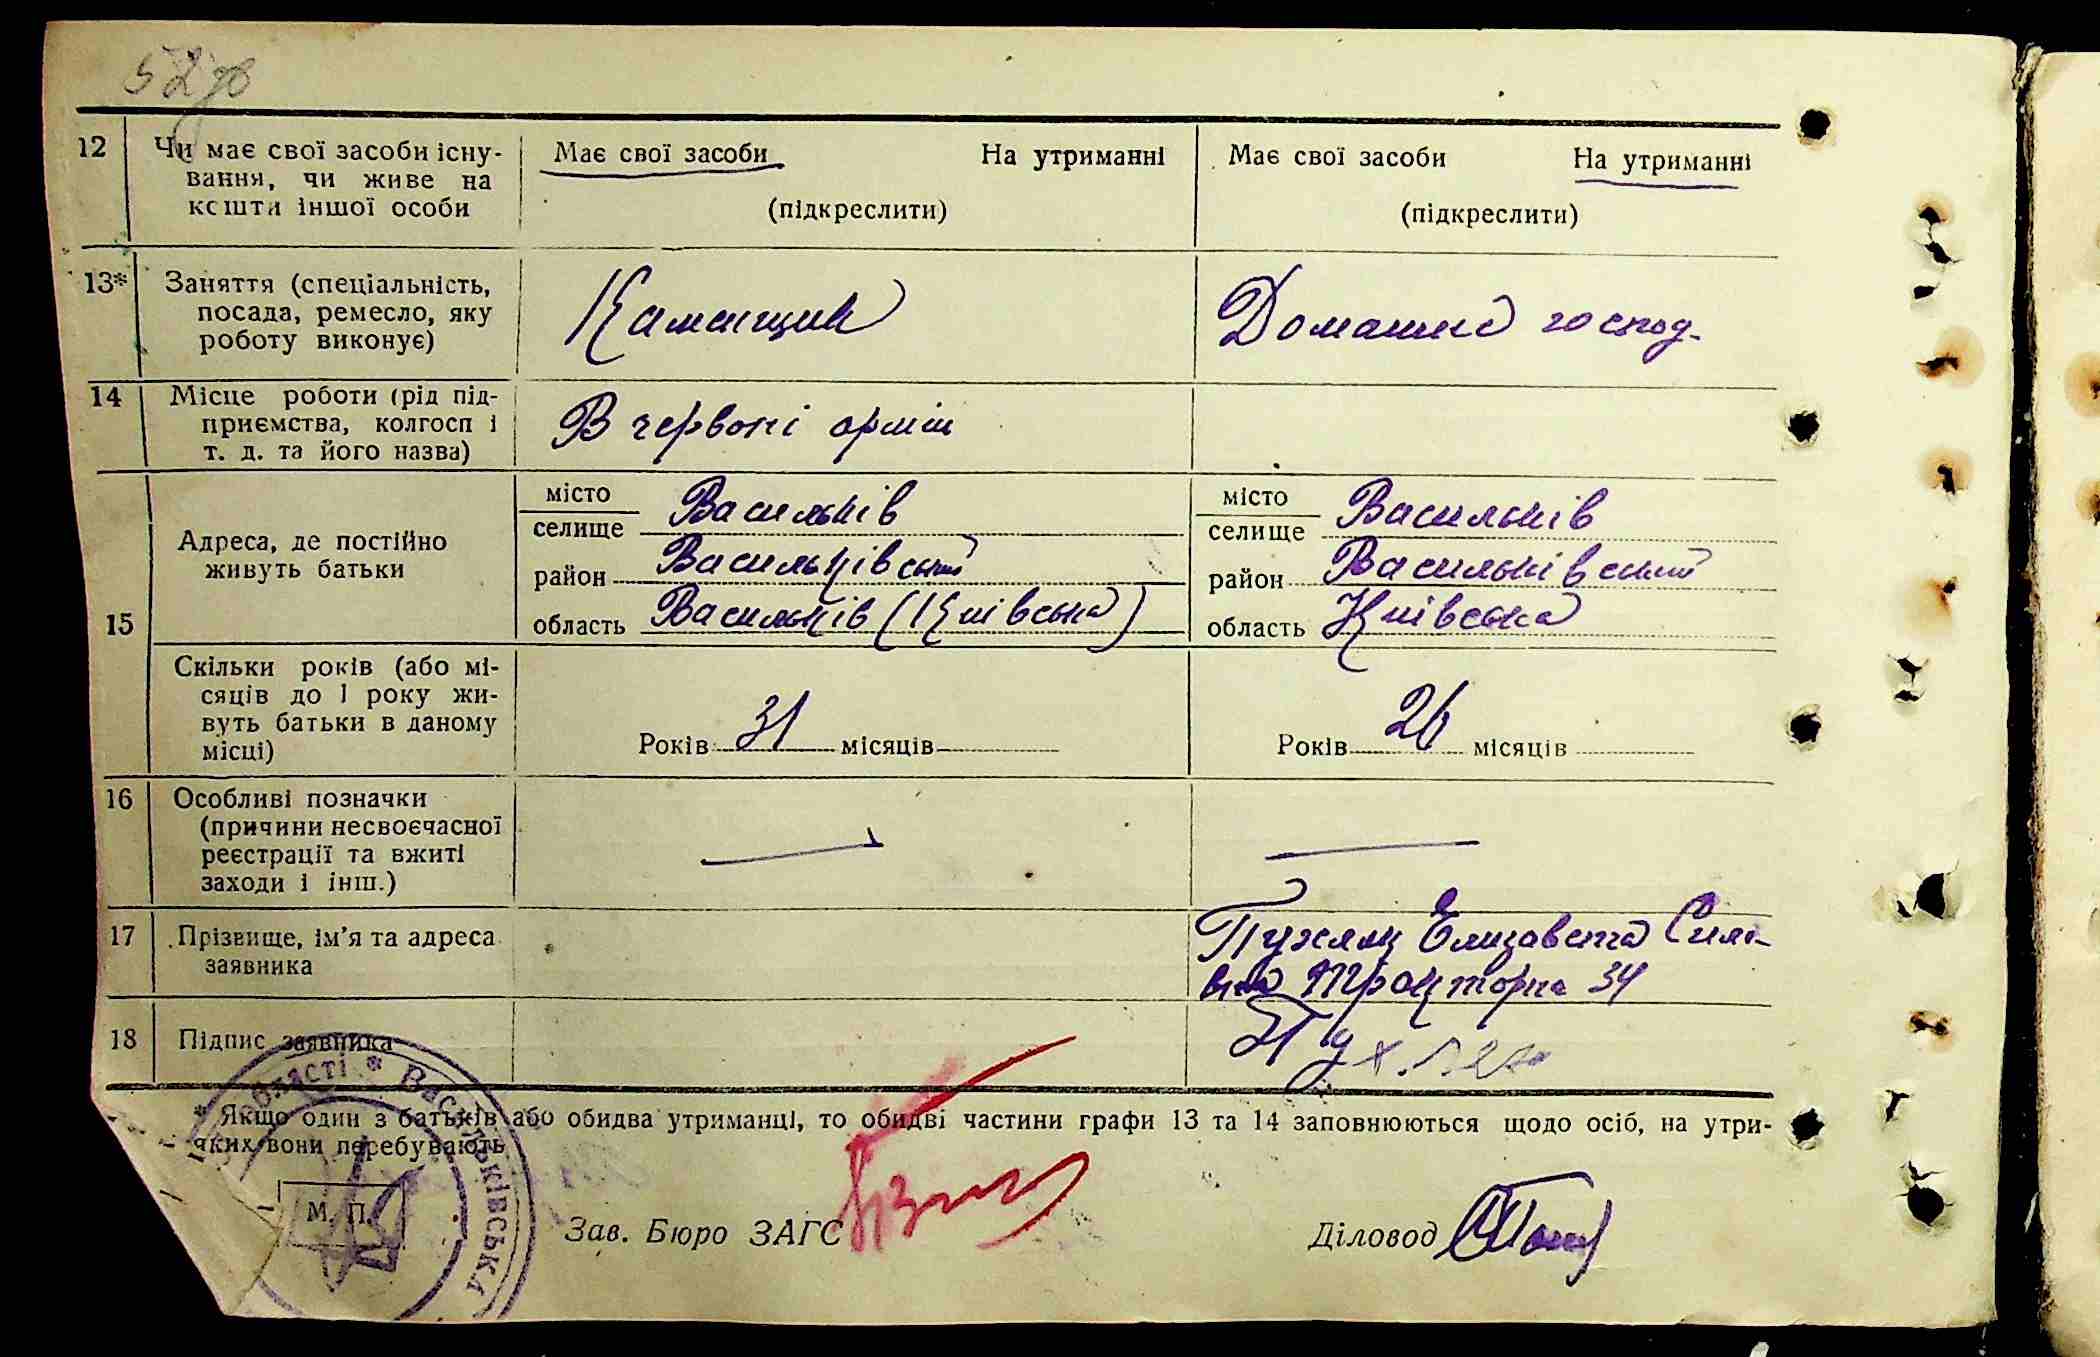 52зв
12 Чи має свої засоби існу-
вання, чи живе на
кошти іншої особи
Має свої засоби На утриманні
(підкреслити)
Має свої засоби На утриманні
(підкреслити)
13* Заняття (спеціальність,
посада, ремесло, яку
роботу виконує)
Каменщик
Домашнє господ.
14 Місце роботи (рід під-
приємства, колгосп і
т. д. та його назва)
В червоні армії
15
Адреса, де постійно
живуть батьки
місто Васильків
селище
район Васильківський
область Васильків (Київська)
місто Васильків
селище
район Васильківский
область Київська
Скільки років (або мі-
сяців до 1 року жи-
вуть батьки в даному
місці)
Років 31 місяців
Років 26 місяців
16 Особливі позначки
(причини несвоєчасної
реєстрації та вжиті
заходи і інш.)
17 Прізвище, ім'я та адреса
заявника
Елизавета
34
18 Підпис заявника
* Якщо один з батьків або обидва утриманці, то обидві частини графи 13 та 14 заповнюються щодо осіб, на утри-
яких вони перебувають
області * Васильківська
М. П.
Зав. Бюро ЗАГС
Діловод